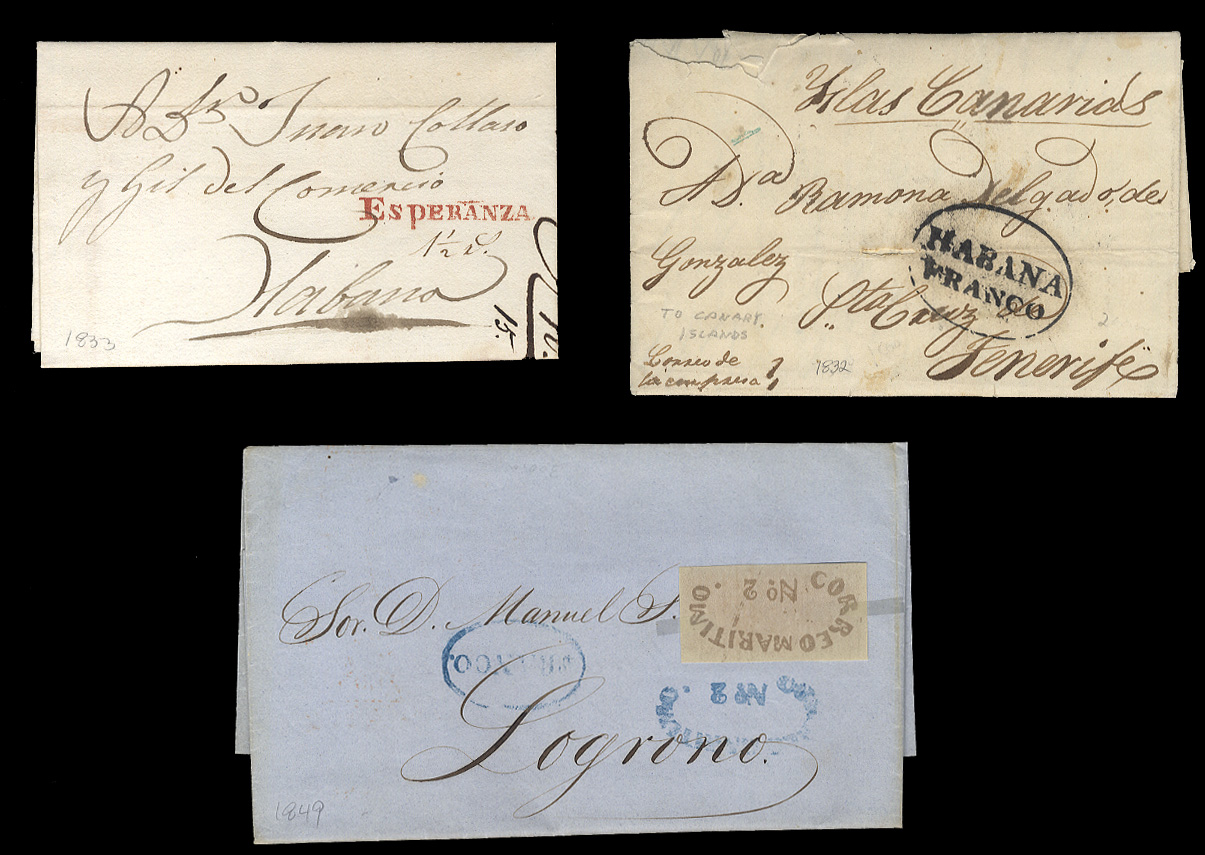 A Dn. Juan Collaso
y Gil del Comercio
ESPERANZA
Habana
15.
1833
Yslas Canarias
A Da. Ramona Delgado, de
Gonzalez
HABANA
FRANCO
Sta Cruz de
TO CANARY
ISLANDS
2
Tenerife
Correo de
la empresa
1832
Sor. D. Manuel S.
CORREO MARITIMO
No. 2.
FRANCO.
No 2.
Logrono.
1849